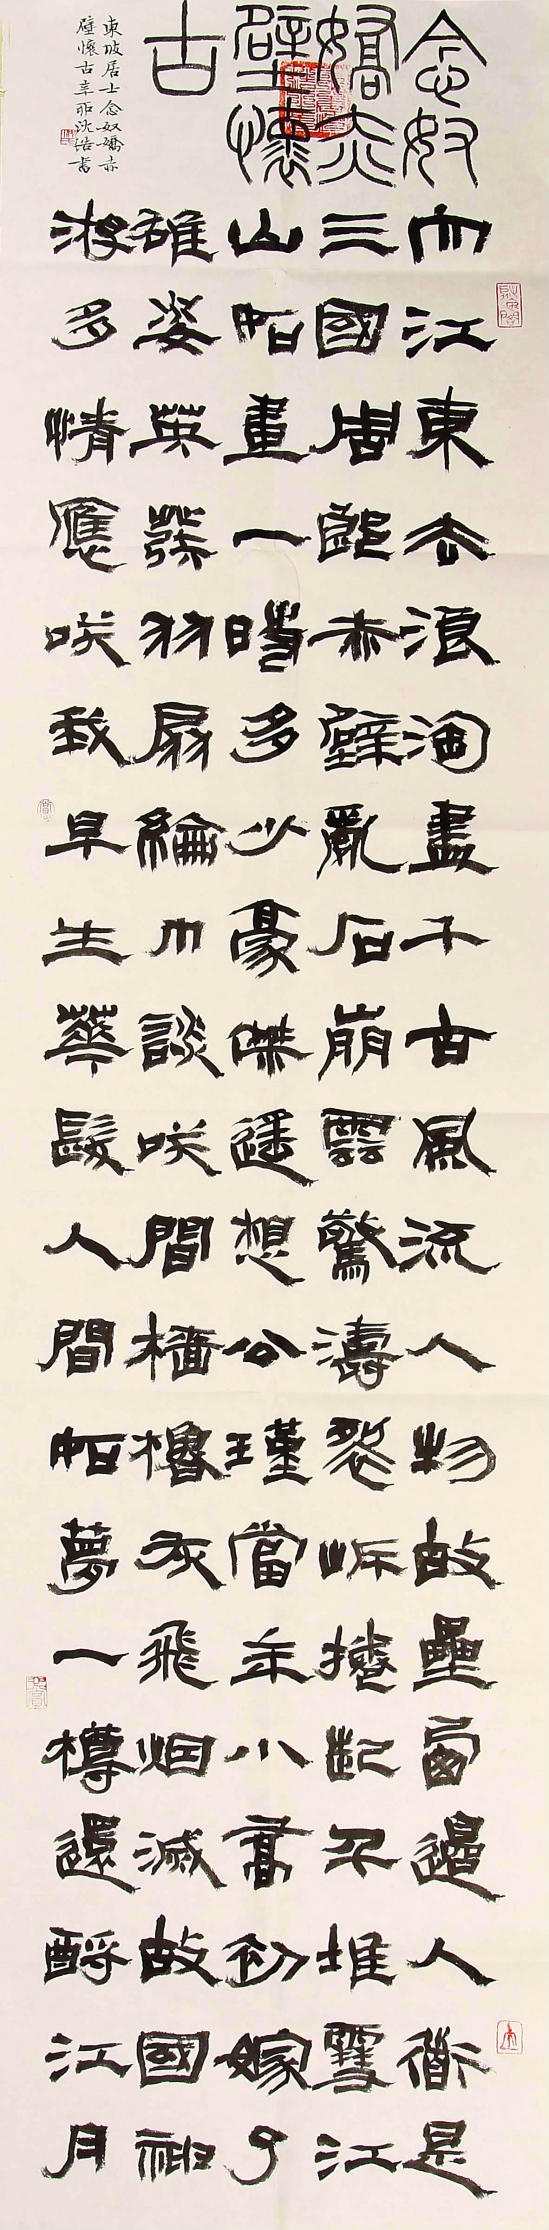 念奴
嬌赤
壁懷
古
大江東去浪淘盡千古風流人物故壘西邊人衜是
三國周郎赤壁亂石崩雲驚濤裂岸捲起千堆雪江
山如畫一時多少豪傑遙想公瑾當年小喬初嫁了
雄姿英發羽扇綸巾談咲間檣櫓灰飛烟滅故國神
游多情應咲我早生華髮人間如夢一樽還酹江月
東坡居士念奴嬌赤
壁懷古辛卯沈浩書